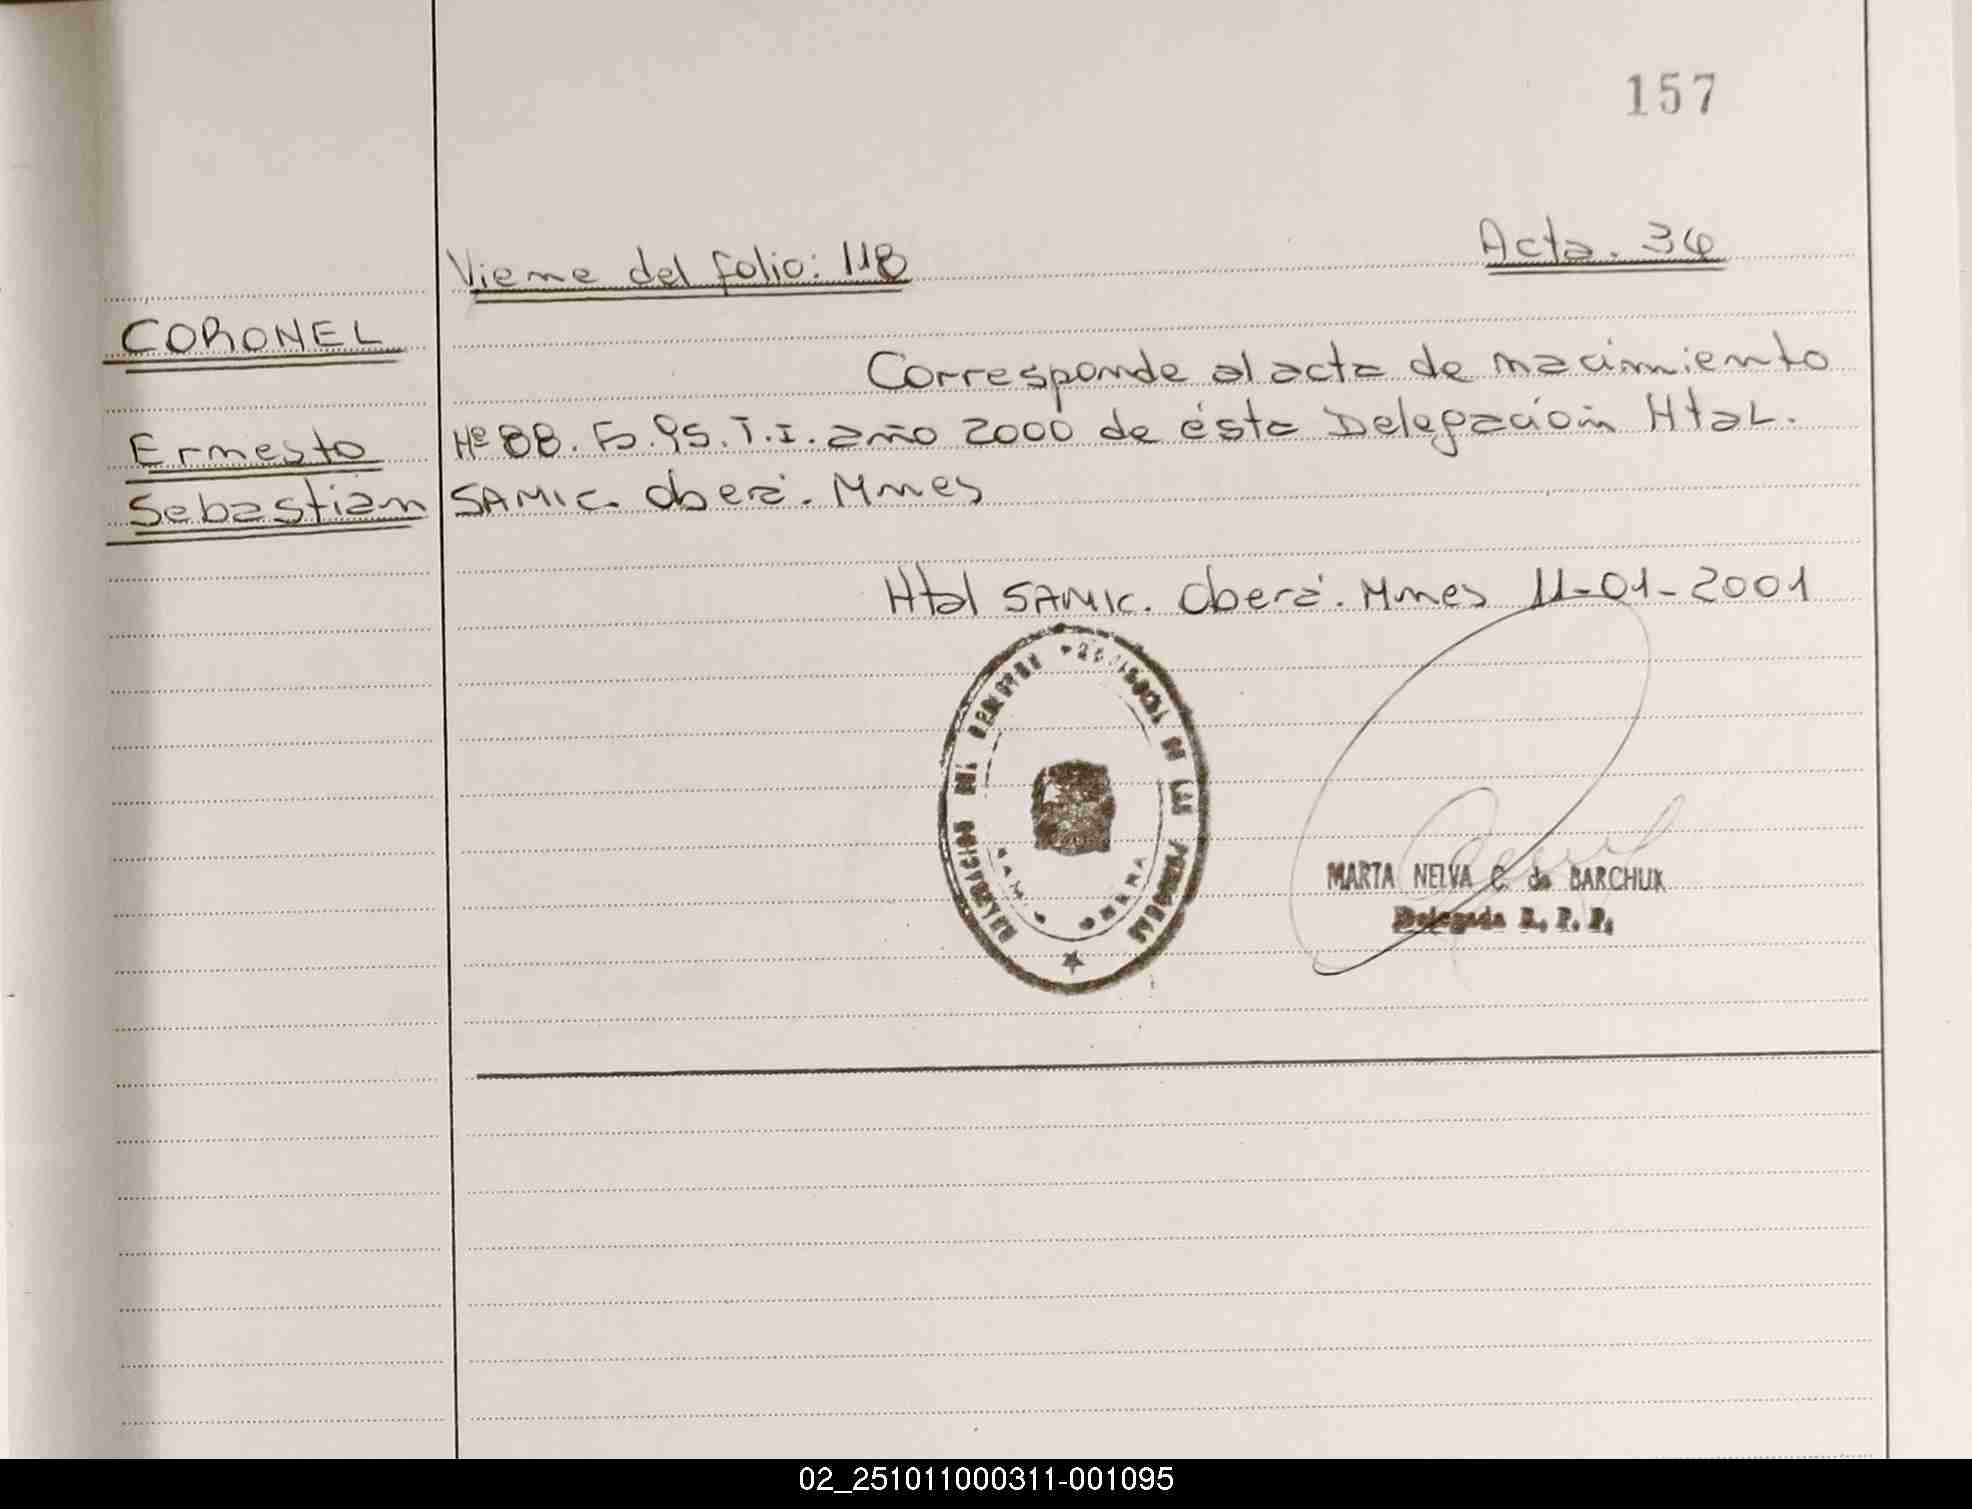 157
Viene del folio: 118
Acta. 34
CORONEL
Corresponde al acta de nacimiento
Ernesto
Nº 88. Fo. 95. T. I. año 2000 de ésta Delegación Htal.
Sebastián
SAMIC. Oberá. Mnes
Htal SAMIC. Oberá. Mnes 11-01-2001
PROVINCIAL DE LAS PERSONAS
MARTA NELVA C. de BARCHUK
Delegada R. P. P.
02_251011000311-001095